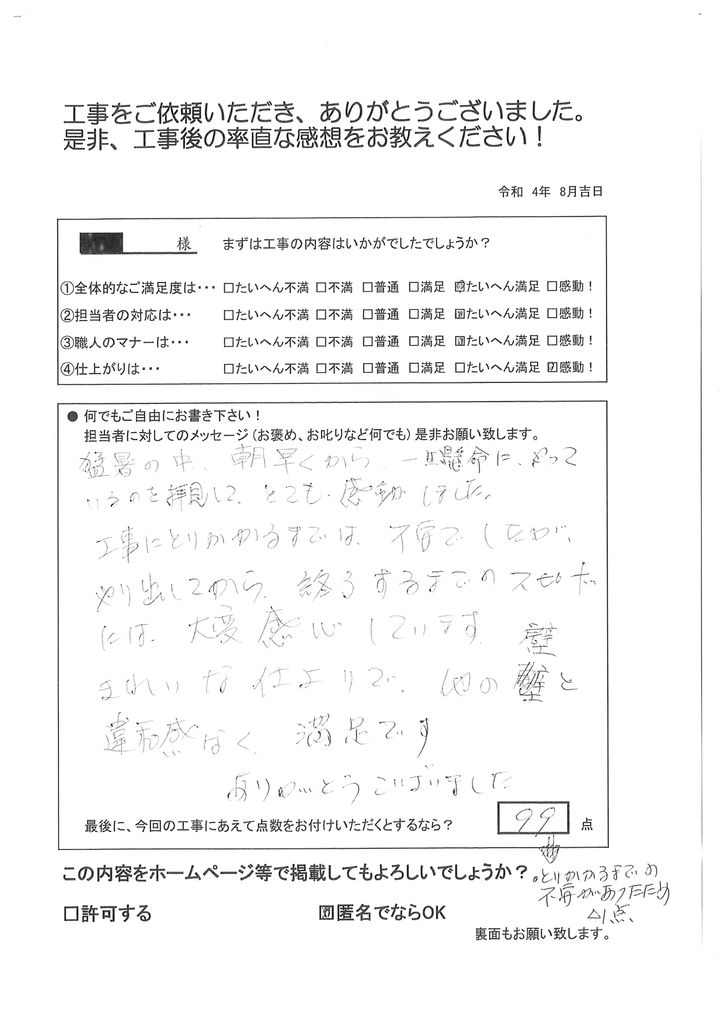 工事をご依頼いただき、ありがとうございました。
是非、工事後の率直な感想をお教えください！
令和 4年 8月吉日
様 まずは工事の内容はいかがでしたでしょうか？
①全体的なご満足度は・・・ □たいへん不満 □不満 □普通 □満足 ☑たいへん満足 □感動！
②担当者の対応は・・・ □たいへん不満 □不満 □普通 □満足 ☑たいへん満足 □感動！
③職人のマナーは・・・ □たいへん不満 □不満 □普通 □満足 ☑たいへん満足 □感動！
④仕上がりは・・・ □たいへん不満 □不満 □普通 □満足 □たいへん満足 ☑感動！
● 何でもご自由にお書き下さい！
担当者に対してのメッセージ（お褒め、お叱りなど何でも）是非お願い致します。
猛暑の中、朝早くから、一生懸命に、やって
いるのを拝見して、とても感動しました。
工事にとりかかるまでは、不安でしたが、
やり出してから、終了するまでのスピード
には、大変感心しています。
きれいな仕上りで、他の壁と
違和感なく、満足です
ありがとうございました
最後に、今回の工事にあえて点数をお付けいただくとするなら？ 99 点
この内容をホームページ等で掲載してもよろしいでしょうか？
。とりかかるまでの
不安があったため
△1点、
□許可する ☑匿名でならOK
裏面もお願い致します。